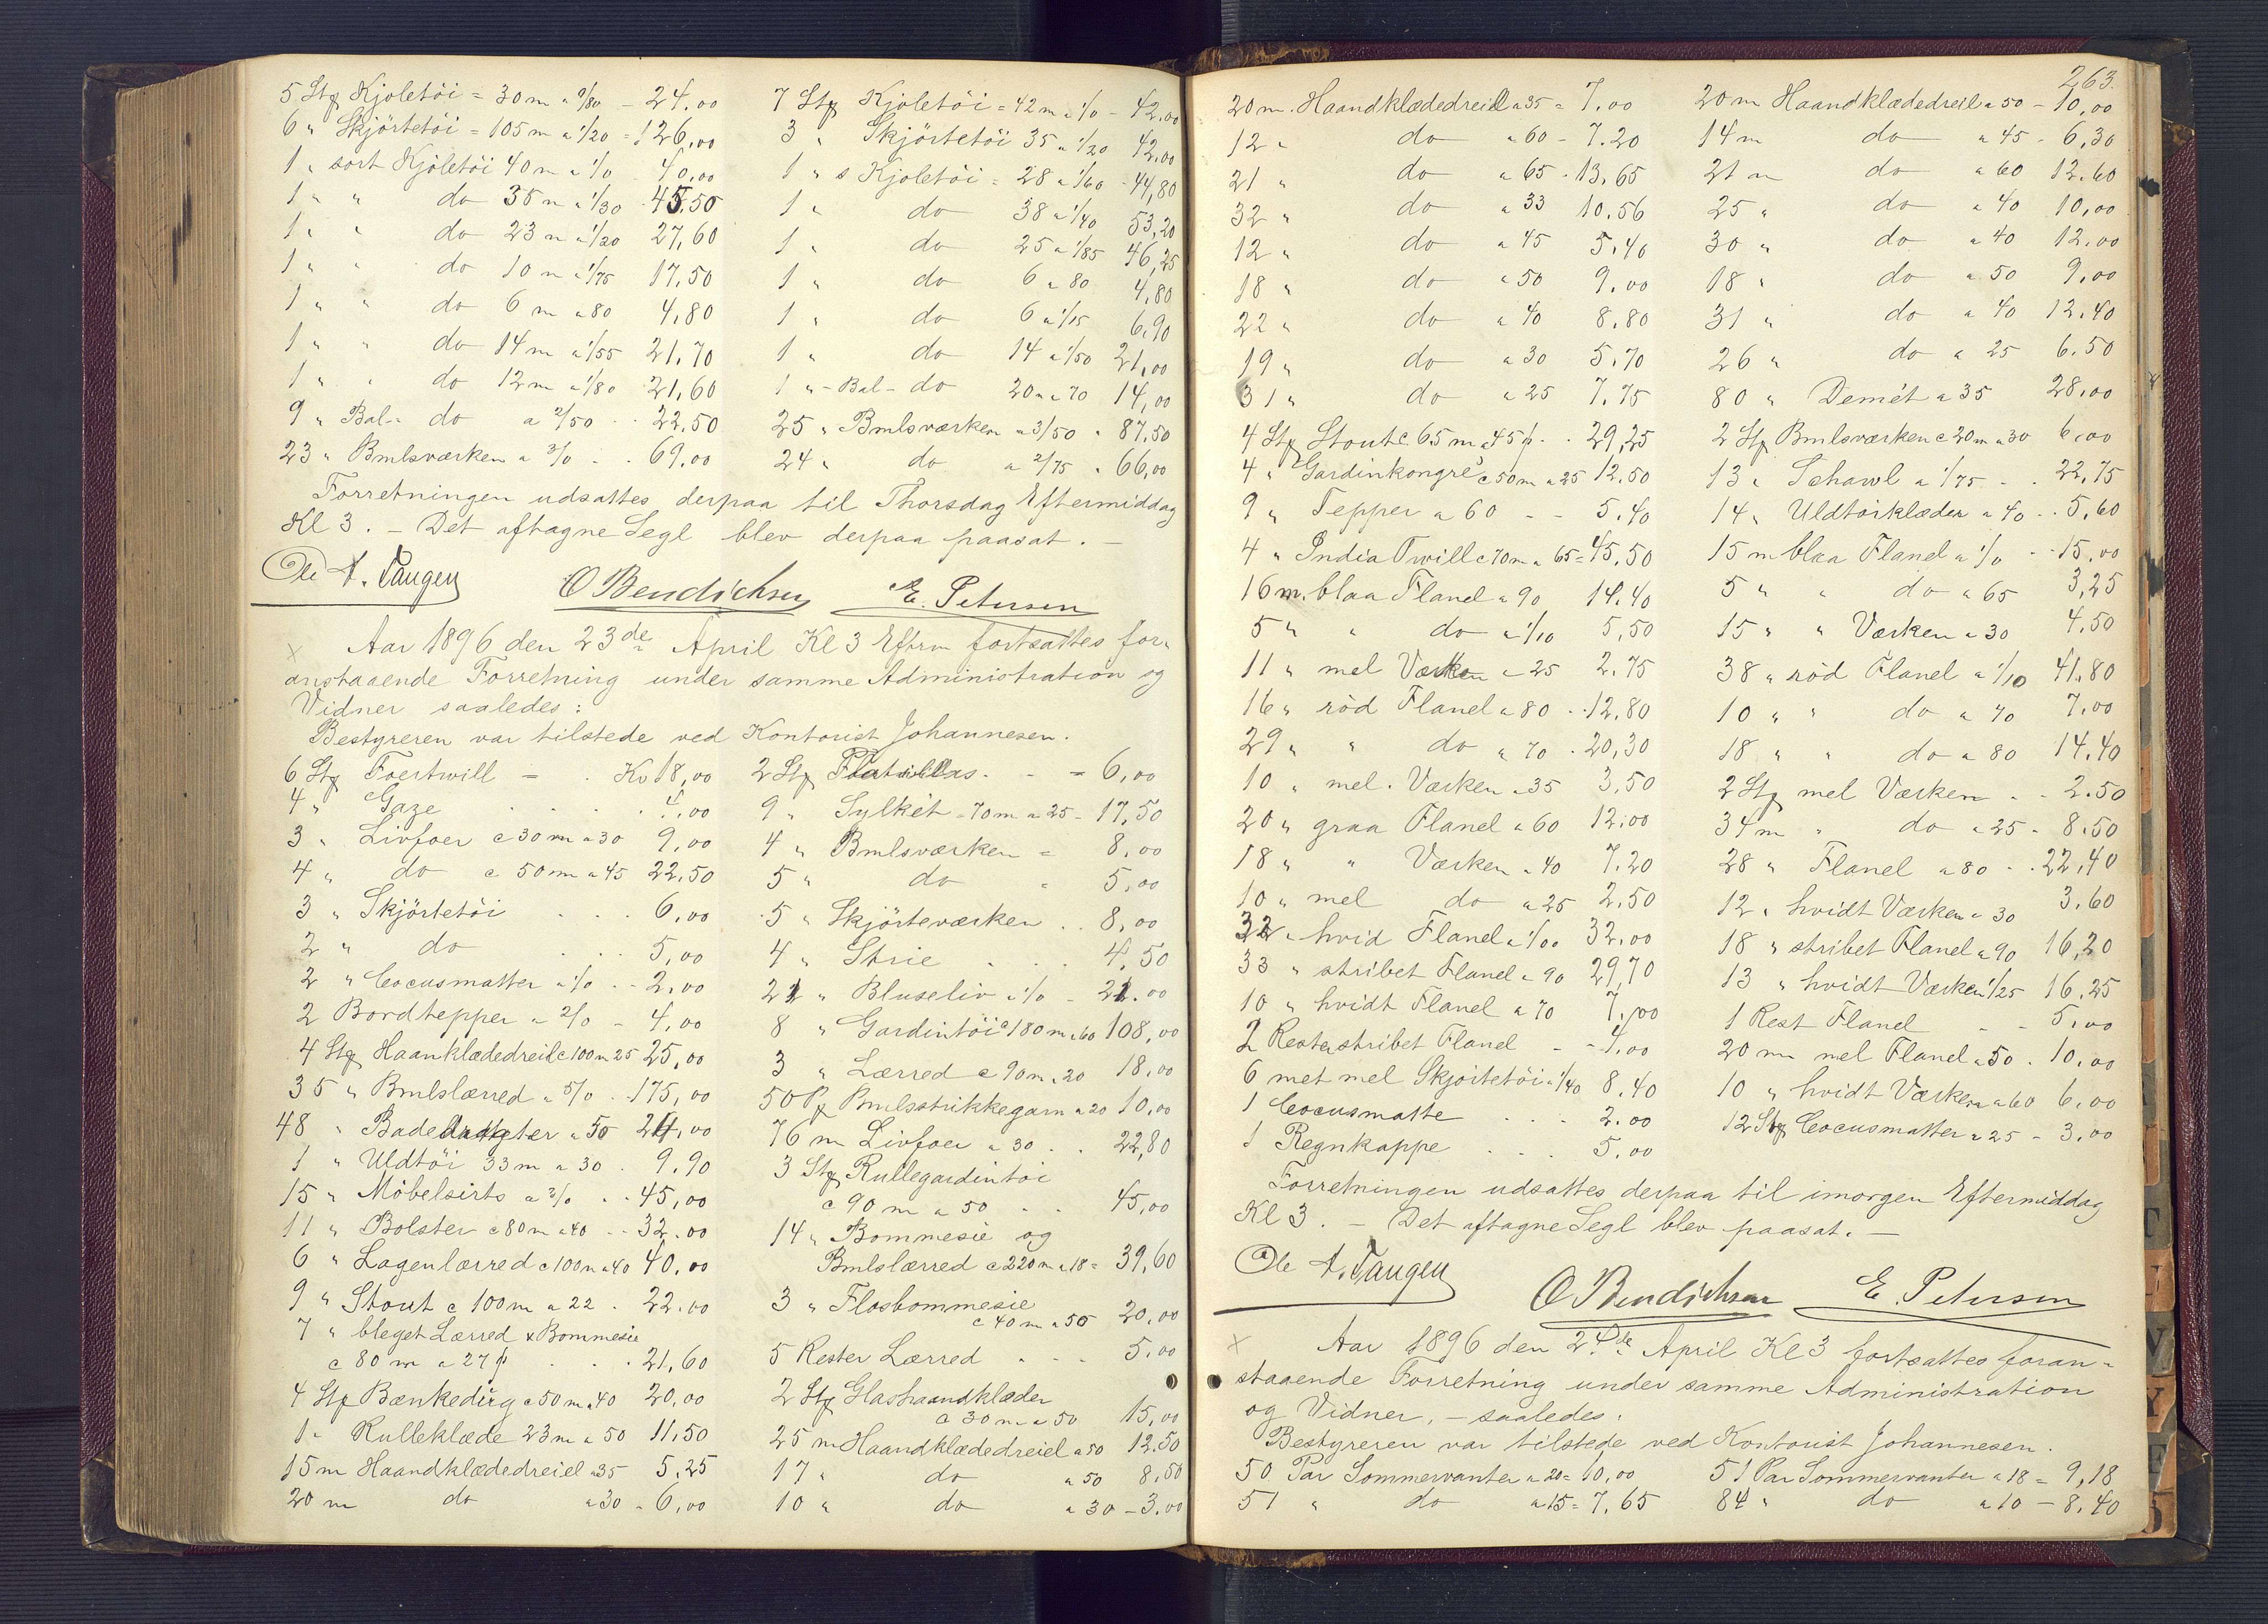 5 Stk Kjoletöi = 30 m a 0/80 - 24.00
6 " Skjörtetöi = 105 m a 1/20 = 126,00
1 " sort Kjoletöi 40 m a 1/0 40,00
1 " " do 35 m a 1/30 45.50
1 " " do 23 m a 1/20 27,60
1 " " do 10 m a 1/75 17,50
1 " " do 6 m a 80 4,80
1 " " do 14 m a 1/55 21,70
1 " " do 12 m a 1/80 21,60
9 " Bal- do a 2/50 - - 22.50
23 " Bmlsværken a 3/0 - - 69.00
7 Stk Kjoletöi = 42 m a 1/0 - 42.00
3 " Skjörtetöi 35 a 1/20 42,00
1 " s Kjoletöi = 28 a 1/60 - 44,80
1 " do 38 a 1/40 53,20
1 " do 25 a 1/85 46,25
1 " do 6 a 80 4,80
1 " do 6 a 1/15 6,90
1 " do 14 a 1/50 21,00
1 " - Bal - do 20 m a 70 14,00
25 " Bmlsværken a 3/50 " 87,50
24 " do a 2/75 " 66,00
Forretningen udsattes derpaa til Thorsdag Eftermiddag
Kl 3. - Det aftagne Segl blev derpaa paasat. -
Ole A. Taugen O Bendichsen E. Petersen
x Aar 1896 den 23de April Kl 3 Efterm fortsattes for-
anstaaende Forretning under samme Administration og
Vidner saaledes:
Bestyreren var tilstede ved Kontorist Johannesen.
6 Stk Foertwill = . Kr 18,00
4 " Gaze . . . . 4,00
3 " Livfoer c 30 m a 30 9,00
4 " do c 50 m a 45 22,50
3 " Skjörtetöi . . . 6,00
2 " do . . . 5,00
2 " Cocusmatter a 1/0 - - 2,00
2 Bordtepper a 2/0 - 4,00
4 Stk Haanklædedreil c 100 m 25 25,00
35 " Bmlslærred a 5/0 . 175,00
48 " a 50 24,00
1 " Uldtöi 33 m a 30 . 9.90
15 " Möbelsirts a 3/0 . . 45,00
11 " Bolster c 80 m a 40 - - 32.00
6 " Lagenlærred c 100 m a 40 40,00
9 " Stout c 100 m a 22 . 22.00
7 " bleget Lærred & Bommesie
c 80 m a 27 p . . . 21,60
4 Stk c 50 m a 40 20,00
1 " Rulleklæde 23 m a 50 11,50
15 m Haandklædedreiel a 35 5,25
20 m do a 30 - 6,00
2 Stk . - = 6,00
9 " Sylkét - 70 m a 25 - 17,50
4 " Bmlsværken = 8,00
5 " do " 5,00
5 " Skjörteværken . . 8,00
4 " Strie . . . 4,50
21 " Bluseliv a 1/0 - 21.00
8 " Gardintöi c 180 m a 60 108,00
3 " Lærred c 90 m a 20 18,00
50 Pk Bmlsstrikkegarn a 20 10,00
76 m Livfoer a 30 . . 22,80
3 Stk Rullegardintöi
c 90 m a 50 . . 45,00
14 " Bommesie og
Bmlslærred c 220 m a 18 = 39,60
3 " Flosbommesie
c 40 m a 50 20,00
5 Rester Lærred . . . 5.00
2 Stk Glashaandklæder
c 30 m a 50 15,00
25 m Haandklædedreiel a 50 12,50
17 " do a 50 8,50
10 " do a 30 - 3,00
263.
20 m. Haandklædedreiel a 35 = 7,00
12 " do a 60 - 7.20
21 " do a 65 . 13,65
32 " do a 33 10,56
12 " do a 45 5,40
18 " do a 50 9,00
22 " do a 40 8.80
19 " do a 30 5,70
31 " do a 25 7,75
4 Stk Stout c 65 m a 45 p - . 29,25
4 " Gardinkongré c 50 m a 25 12,50
9 " Tepper a 60 - - 5,40
4 " India Twill c 70 m a 65 = 45,50
16 m. blaa Flanel a 90 14,40
5 " " do a 1/10 5,50
11 " mel Værken a 25 2,75
16 " röd Flanel a 80 . . 12,80
29 " " do a 70 . 20,30
10 " mel. Værken a 35 3,50
20 " graa Flanel a 60 12,00
18 " " Værken a 40 7,20
10 " mel do a 25 2,50
32 " hvid Flanel a 1/00 32,00
33 " stribet Flanel a 90 29,70
10 " hvidt Flanel a 70 7,00
2 Rester stribet Flanel - - 4,00
6 met mel Skjörtetöi a 1/40 8,40
1 Cocusmatte . . . 2.00
1 Regnkappe . . . 5,00
20 m Haandklædedreiel a 50 - 10,00
14 m do a 45 - 6,30
21 m do a 60 12.60
25 " do a 40 10,00
30 " do a 40 12,00
18 " do a 50 9,00
31 " do a 40 12,40
26 " do a 25 6.50
80 " Demét a 35 28,00
2 Stk Bmlsværken c 20 m a 30 6,00
13 " Schawl a 1/75 - . 22,75
14 " Uldtörklæder a 40 - . 5,60
15 m blaa Flanel a 1/0 - - 15,00
5 " " do a 65 3,25
15 " " Værken a 30 4,50
38 " röd Flanel a 1/10 41,80
10 " " do a 70 7,00
18 " " do a 80 14,40
2 Stk mel Værken - - 2.50
34 m " do a 25 - 8,50
28 " Flanel a 80 - . 22,40
12 " hvidt Værken a 30 3,60
18 " stribet Flanel a 90 16,20
13 " hvidt Værken 1/25 16,25
1 Rest Flanel - - 5,00
20 m mel Flanel a 50 . 10,00
10 " hvidt Værken a 60 6,00
12 Stk Cocusmatter a 25 - 3,00
Forretningen udsattes derpaa til imorgen Eftermiddag
Kl 3. - Det aftagne Segl blev paasat. -
Ole A. Taugen O Bendichsen E. Petersen
x Aar 1896 den 24de April Kl 3 fortsattes foran-
staaende Forretning under samme Administration
og Vidner, - saaledes:
Bestyreren var tilstede ved Kontorist Johannesen.
50 Par Sommervanter a 20 = 10,00 51 Par Sommervanter a 18 = 9,18
51 " do a 15 = 7,65 84 " do a 10 - 8,40